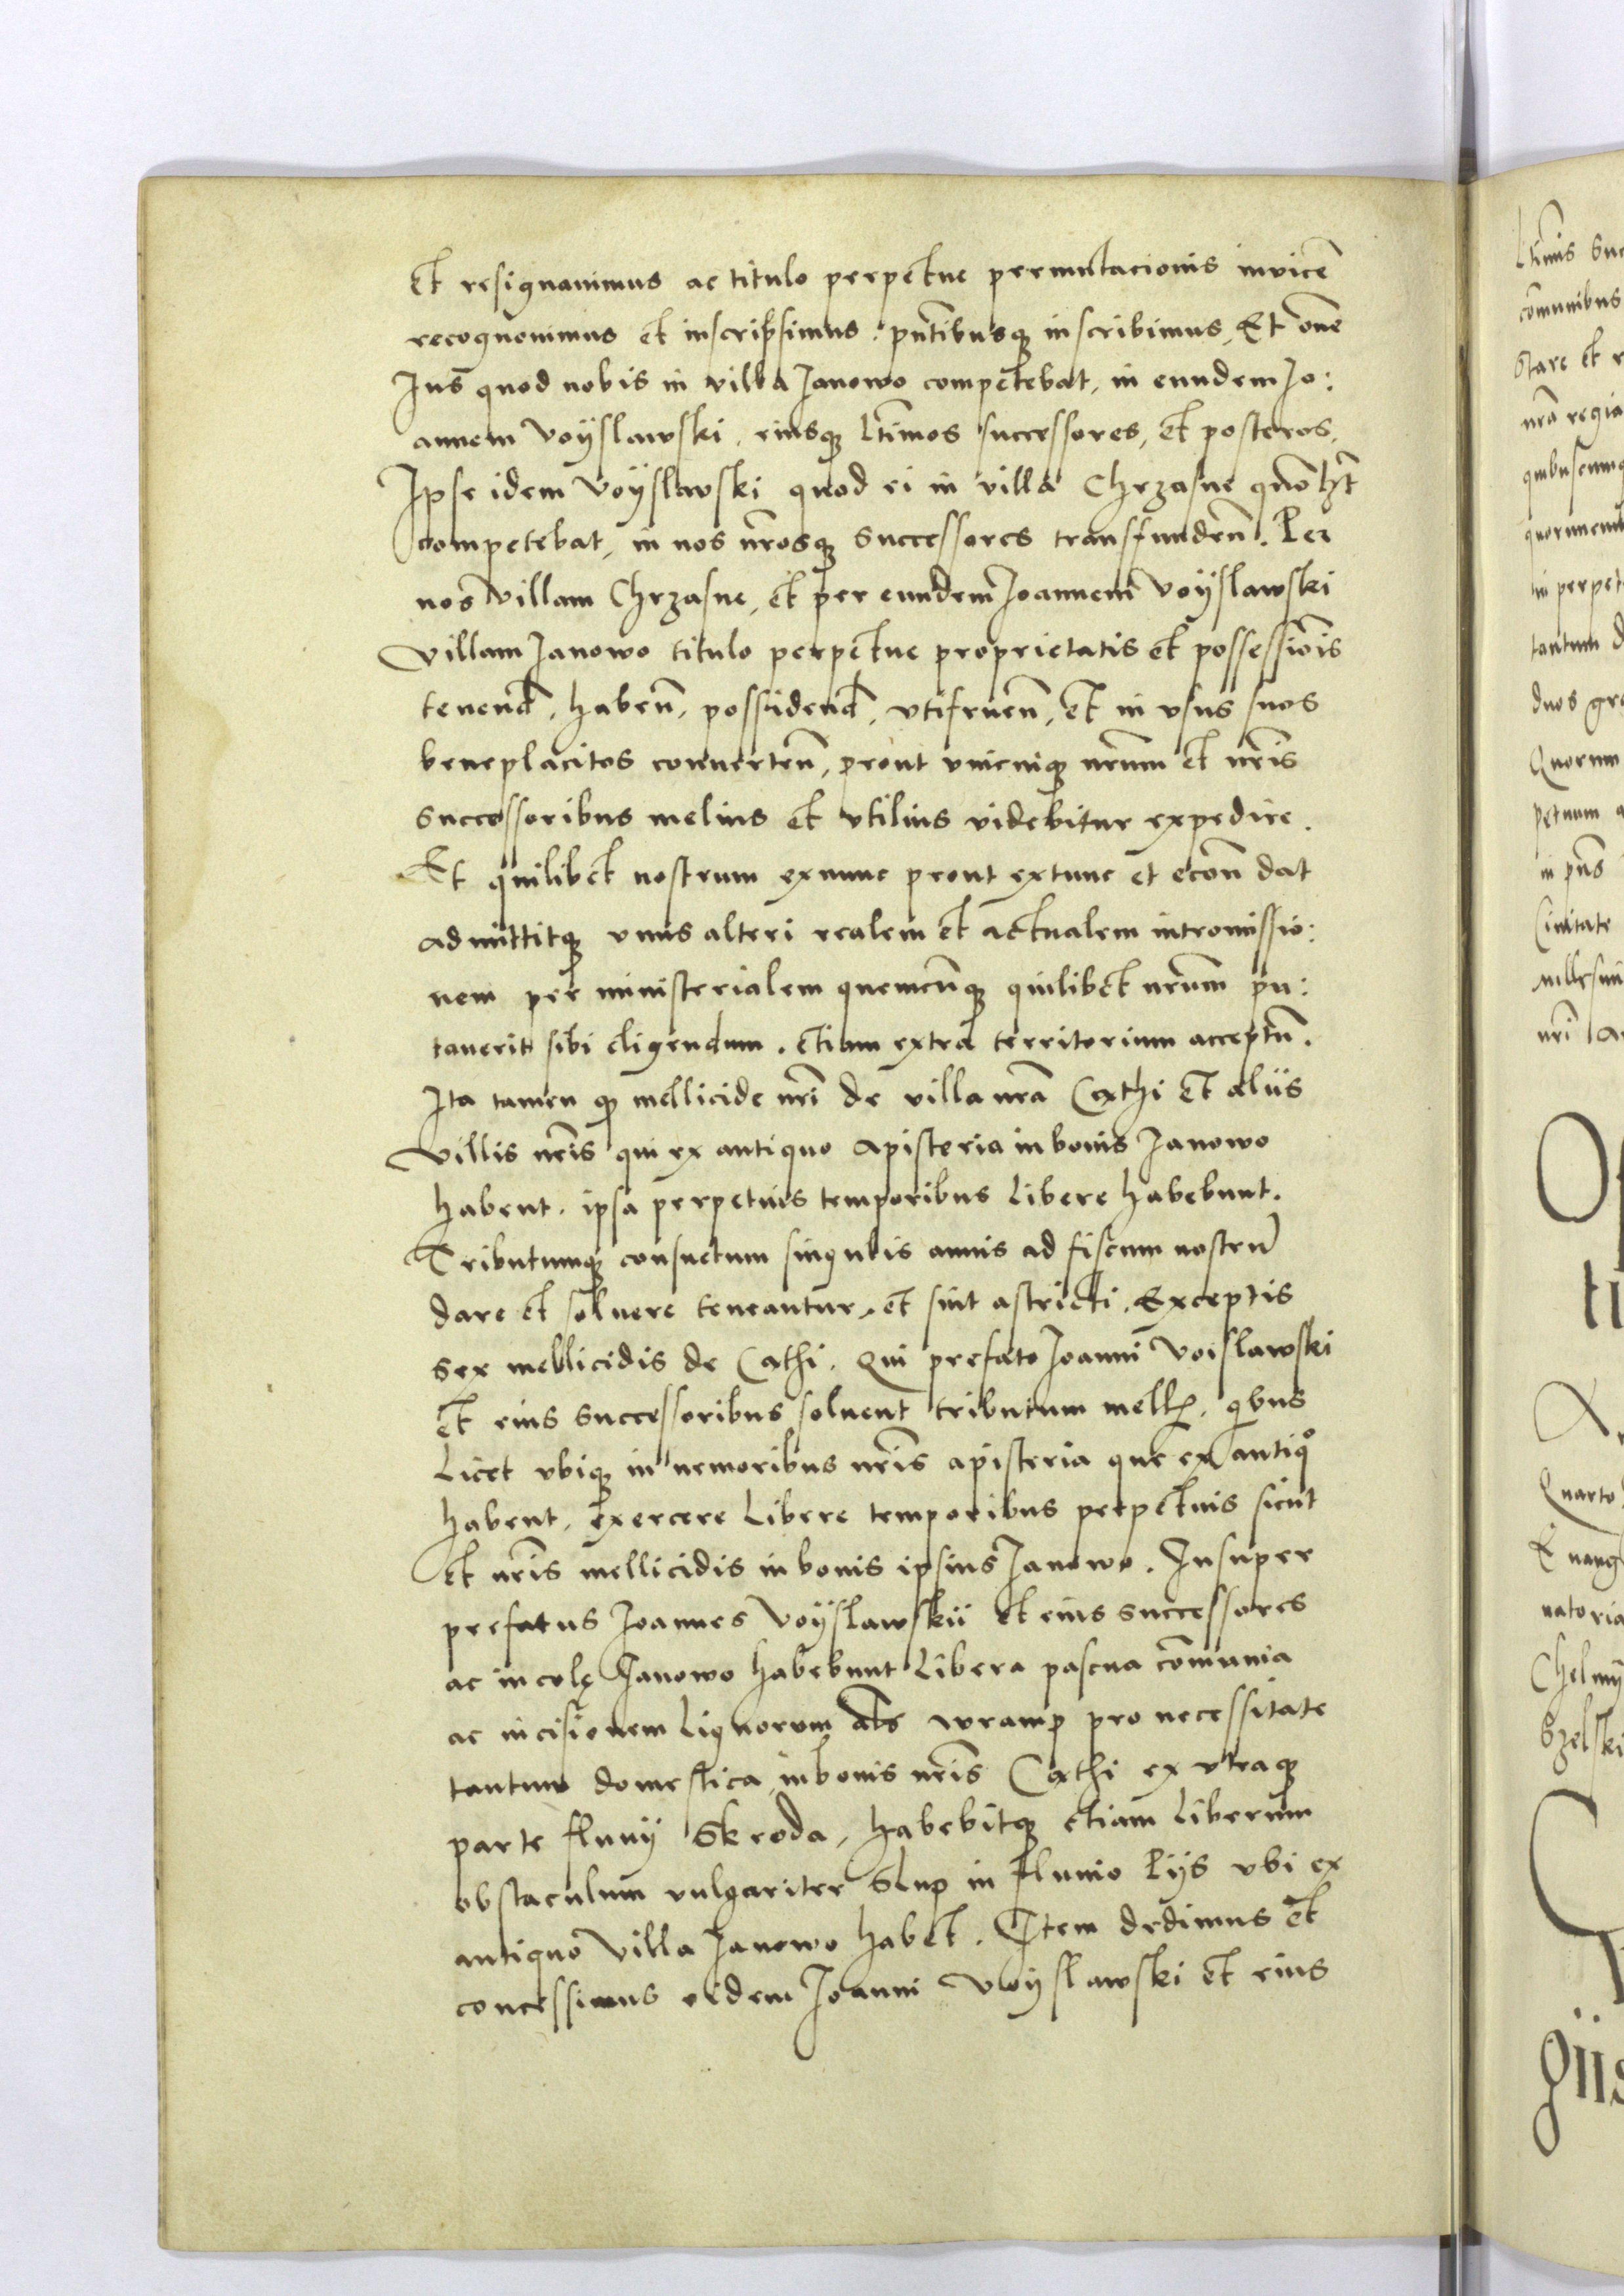 Et resignauimus ac titulo perpetue permutacionis inuicē
recognouimus et inscripsimus. pn̄tibusq̨ inscribimus, Et om̄e
Ius quod nobis in villa Ianowo competebat, in eundem Io:
annem Voÿslawski, eiusq̨ l̄timos successores, et posteros,
Ipse idem Voÿslawski quod ei in villa Chrzasne quōlz̄t
competebat, in nos nr̄osq̨ Successores transfunden̄. Per
nos Villam Chrzasne, et per eundem Ioannem Voÿslawski
Villam Ianowo titulo perpetue proprietatis et possessiōis
tenend̄, haben̄, possidend̄, vtifruen̄, et in vsus suos
beneplacitos conuerten̄, prout vnicuiq̨ nr̄um et nr̄is
Successoribus melius et vtilius videbitur expedire.
Et quilibet nostrum exnunc prout extunc et econ̄ dat
admittitq̨ vnus alteri realem et actualem intromissio:
nem per ministerialem quemcūq̨ quilibet nr̄um pu:
tauerit sibi eligendum. etiam extra territorium acceptū.
Ita tamen q̨ mellicide nr̄i de villa nr̄a Cathi et aliis
Villis nr̄is qui ex antiquo apisteria in bonis Ianowo
habent. ipsa perpetuis temporibus libere habebunt.
Tributumq̨ consuetum singulis annis ad fiscum nostrū
dare et soluere teneantur, et sint astricti. Exceptis
Sex mellicidis de Cathi. Qui prefato Ioanni Voislawski
et eius Successoribus soluent tributum mell̨. qbus
Licet vbiq̨ in nemoribus nr̄is apisteria que ex antiqo
habent, exercere Libere temporibus perpetuis sicut
et nr̄is mellicidis in bonis ipsius Ianowo. Insuper
prefatus Ioannes Voÿslawskii et eius Successores
ac incolę Ianowo habebunt Libera pascua cōmunia
ac incisionem Lignorum al̄s wramp pro necessitate
tantum domestica in bonis nr̄is Cathi ex vtraq̨
parte fluuÿ Skroda, habebitq̨ etiam Liberum
obstaculum vulgariter Slup in fluuio Pijs vbi ex
antiquo Villa Ianowo habet. Item dedimus et
concessimus eidem Ioanni Voÿslawski et eius